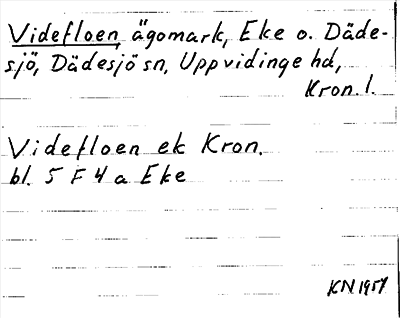 Videfloen, ägomark, Eke o. Däde-
sjö, Dädesjö sn, Uppvidinge hd,
Kron. l.
Videfloen ek Kron.
bl. 5 F 4 a Eke
KN 1957